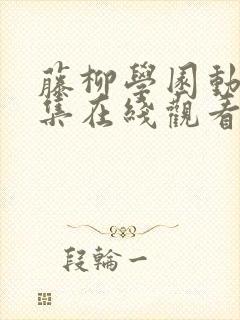 藤柳學園動
集在綫觀看
段輪一